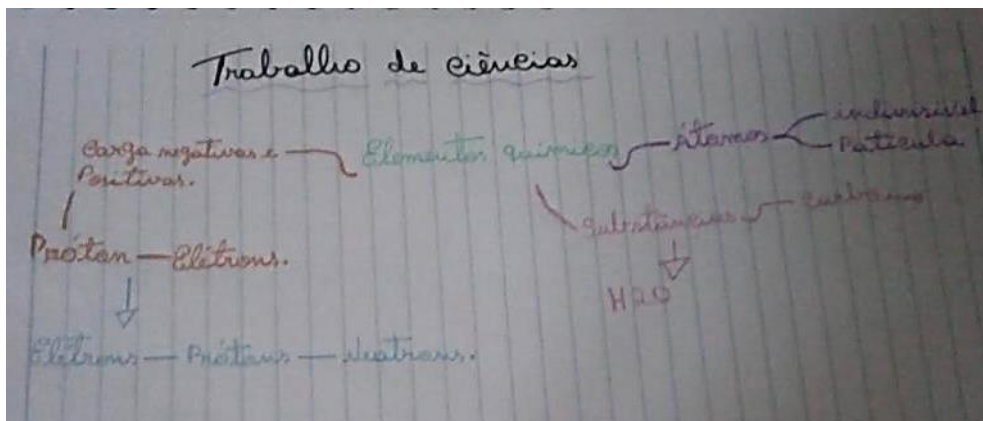 Trabalho de ciências
Carga negativas e
Positivas.
Elementos químicos
Átomos
indivisível
Particula
Substâncias
Carbono
Próton — Elétrons.
H2O
Elétrons — Prótons — Neutrons.